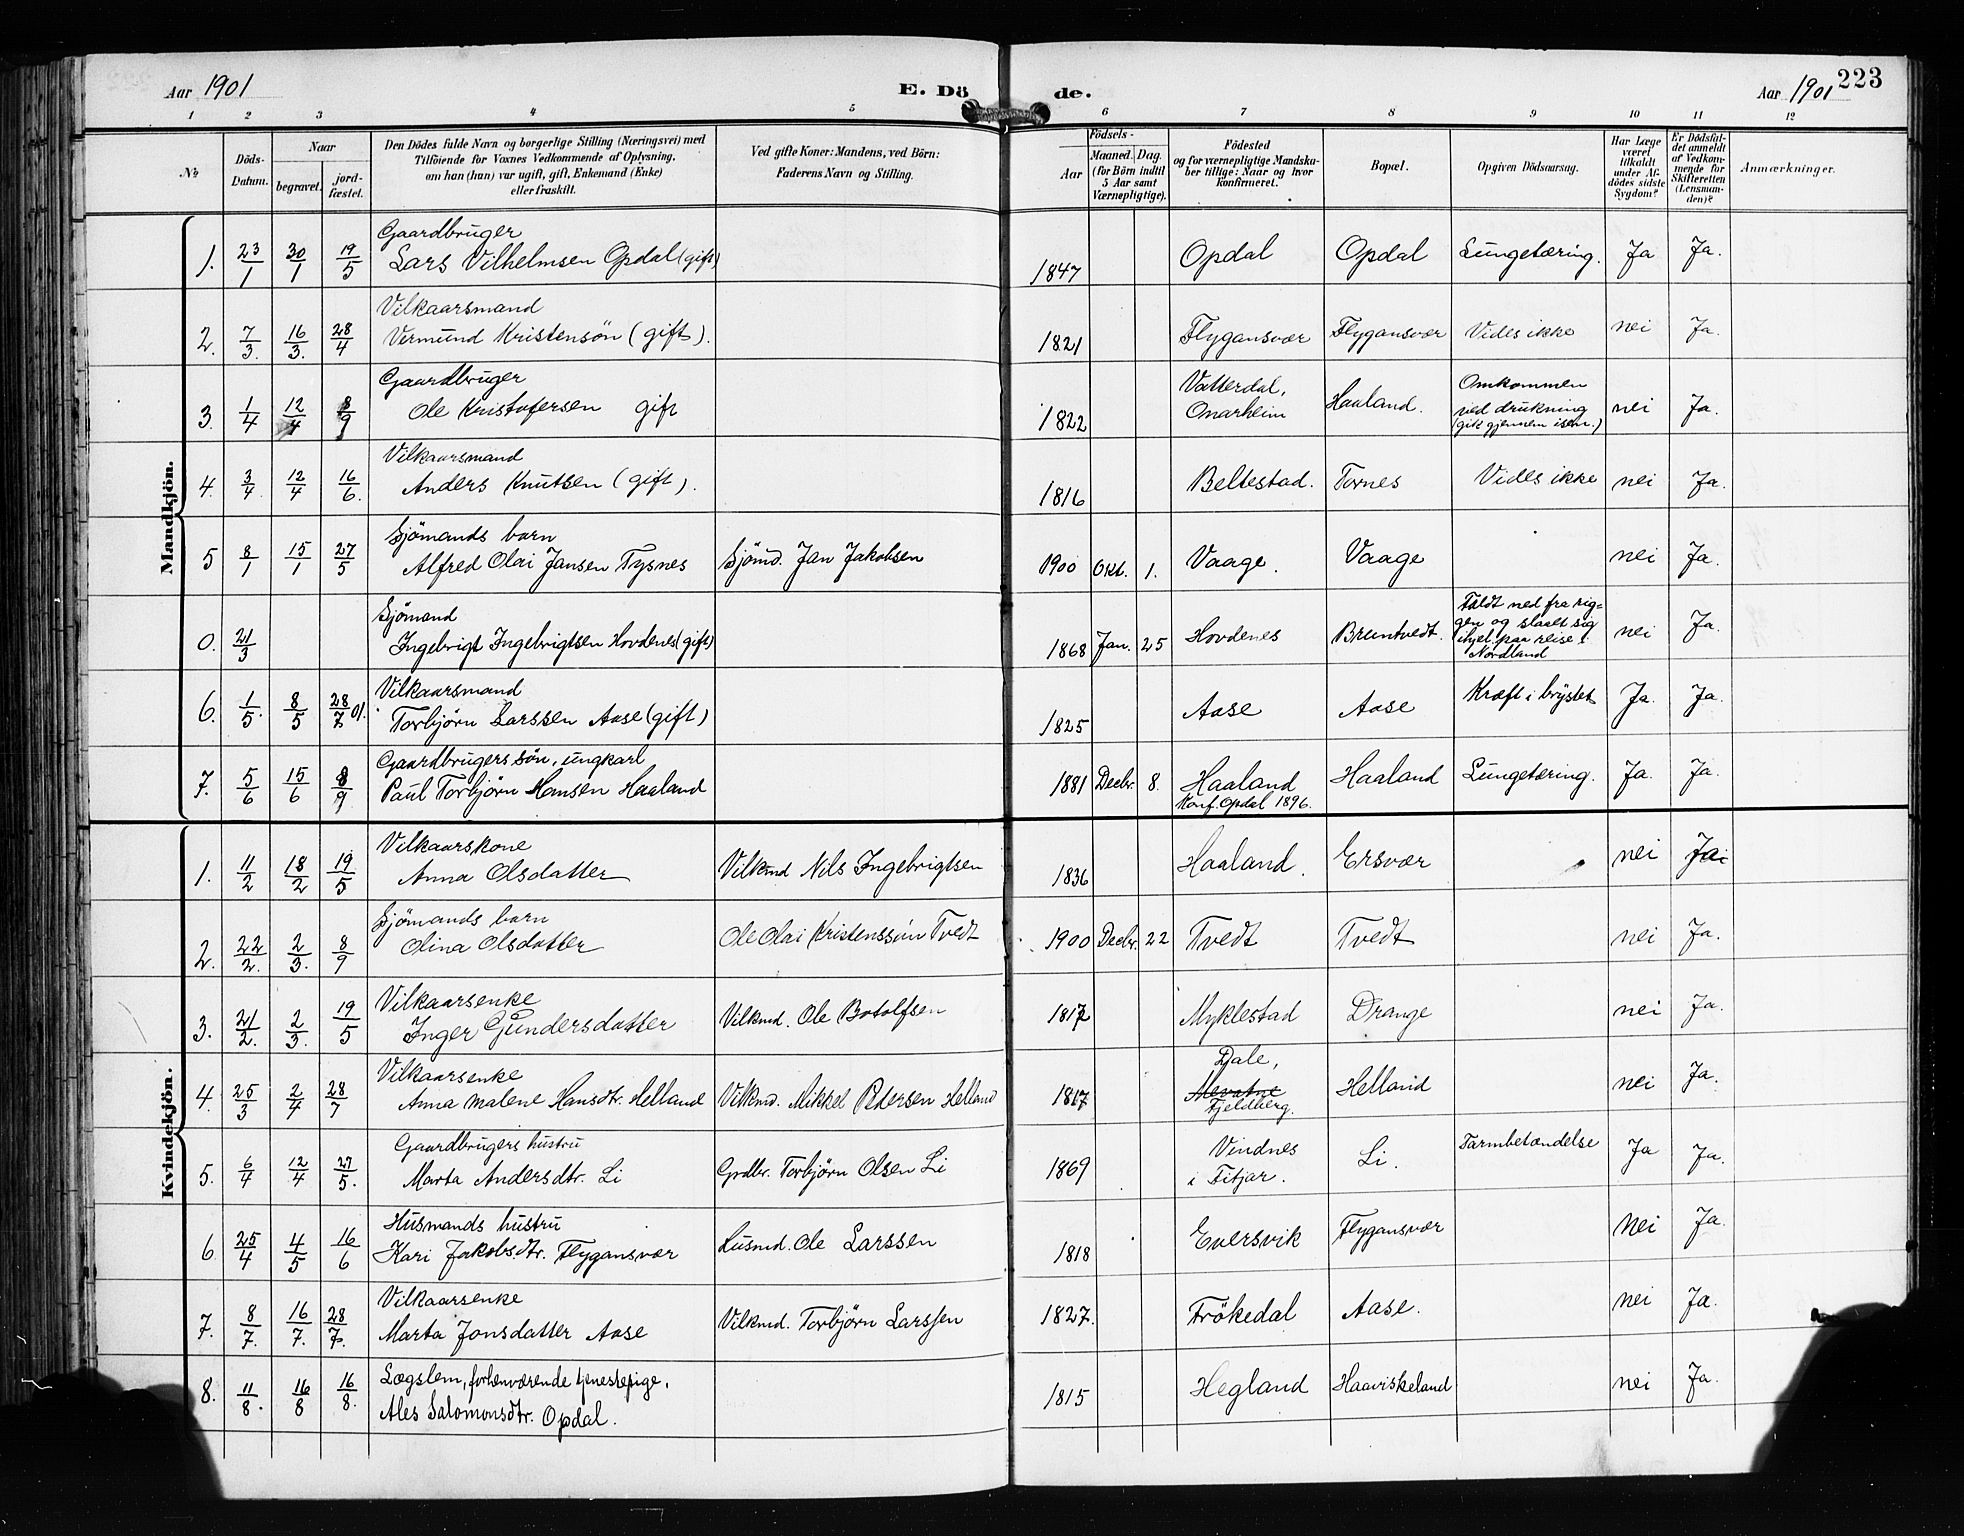 Aar 1901 E. Dö de. Aar 1901 223
1 2 3 4 5 6 7 8 9 10 11 12
No. Döds-Datum. Naar begravet. jord-fæstet. Den Dödes fulde Navn og borgerlige Stilling (Næringsvei) med Tilföiende for Voxnes Vedkommende af Oplysning, om han (hun) var ugift, gift, Enkemand (Enke) eller fraskilt. Ved gifte Koner: Mandens, ved Börn: Faderens Navn og Stilling. Födsels- Aar Maaned. Dag. (for Börn indtil 5 Aar samt Værnepligtige). Födested og for værnepligtige Mandska-ber tillige: Naar og hvor konfirmeret. Bopæl. Opgiven Dödsaarsag. Har Læge været tilkaldt under Af-dödes sidste Sygdom? Er Dödsfal-det anmeldt af Vedkom-mende for Skifteretten (Lensman-den)? Anmærkninger.
Mandkjön.
1. 23/1 30/1 19/5 Gaardbruger
Lars Vilhelmsen Opdal (gift) 1847 Opdal Opdal Lungetæring. Ja Ja.
2. 7/3. 16/3. 28/4 Vilkaarsmand
Vermund Kristensön (gift). 1821 Flygansvær Flygansvær Vides ikke nei Ja.
3. 1/4 12/4 8/9 Gaardbruger
Ole Kristofersen gift 1822 Vatterdal, Onarheim Haaland. Omkommen ved drukning (gik gjennem isen.) nei Ja.
4. 3/4. 12/4 16/6. Vilkaarsmand
Anders Knutsen (gift). 1816 Beltestad. Tornes Vides ikke nei Ja.
5 8/1 15/1 27/5 Sjömands barn
Alfred Olai Jansen Tysnes Sjömd. Jan Jakobsen 1900 Okt. 1. Vaage. Vaage nei Ja.
0. 21/3 Sjömand
Ingebrigt Ingebrigtsen Hovdenes (gift) 1868 Jan. 25 Hovdenes Bruntvedt. Faldt ned fra rig=gen og slaaet sig ihjel paa reise i Nordland nei Ja.
6. 1/5. 8/5 28/7 01. Vilkaarsmand
Torbjörn Larssen Aase (gift) 1825 Aase Aase Kræft i brystet Ja. Ja.
7. 5/6 15/6 8/9 Gaardbrugers sön, ungkarl
Paul Torbjörn Hansen Haaland 1881 Decbr. 8. Haaland Konf. Opdal 1896. Haaland Lungetæring. Ja. Ja.
Kvindekjön.
1. 11/2 18/2 19/5 Vilkaarskone
Anna Olsdatter Vilkmd Nils Ingebrigtsen 1836 Haaland. Ersvær nei Ja
2. 22/2. 2/3. 8/9 Sjömands barn
Olina Olsdatter Ole Olai Kristenssön Tvedt 1900 Decbr. 22 Tvedt Tvedt nei Ja.
3. 21/2. 2/3. 19/5 Vilkaarsenke
Inger Gundersdatter Vilkmd. Ole Botolfsen 1817 Myklestad Drange nei Ja.
4. 25/3 2/4 28/7 Vilkaarsenke
Anna Malene Hansdtr. Helland Vilkmd. Mikkel Pedersen Helland 1817 Dale, Fjeldberg. Helland nei Ja.
5. 6/4 12/4 27/5. Gaardbrugers hustru
Marta Andersdtr. Li Grdbr. Torbjörn Olsen Li 1869 Vindnes i Fitjar. Li. Tarmbetændelse Ja Ja.
6. 25/4 4/5 16/6 Husmands hustru
Kari Jakobsdtr. Flygansvær Husmd. Ole Larssen 1818 Eversvik Flygansvær nei Ja.
7. 8/7. 16/7. 28/7. Vilkaarsenke
Marta Jonsdatter Aase Vilkmd. Torbjörn Larssen 1827. Frökedal Aase. nei Ja.
8. 11/8. 16/8 16/8. Lægslem, forhenværende tjenestepige.
Ales Salomonsdtr. Opdal. 1815 Hegland Haaviskeland nei Ja.